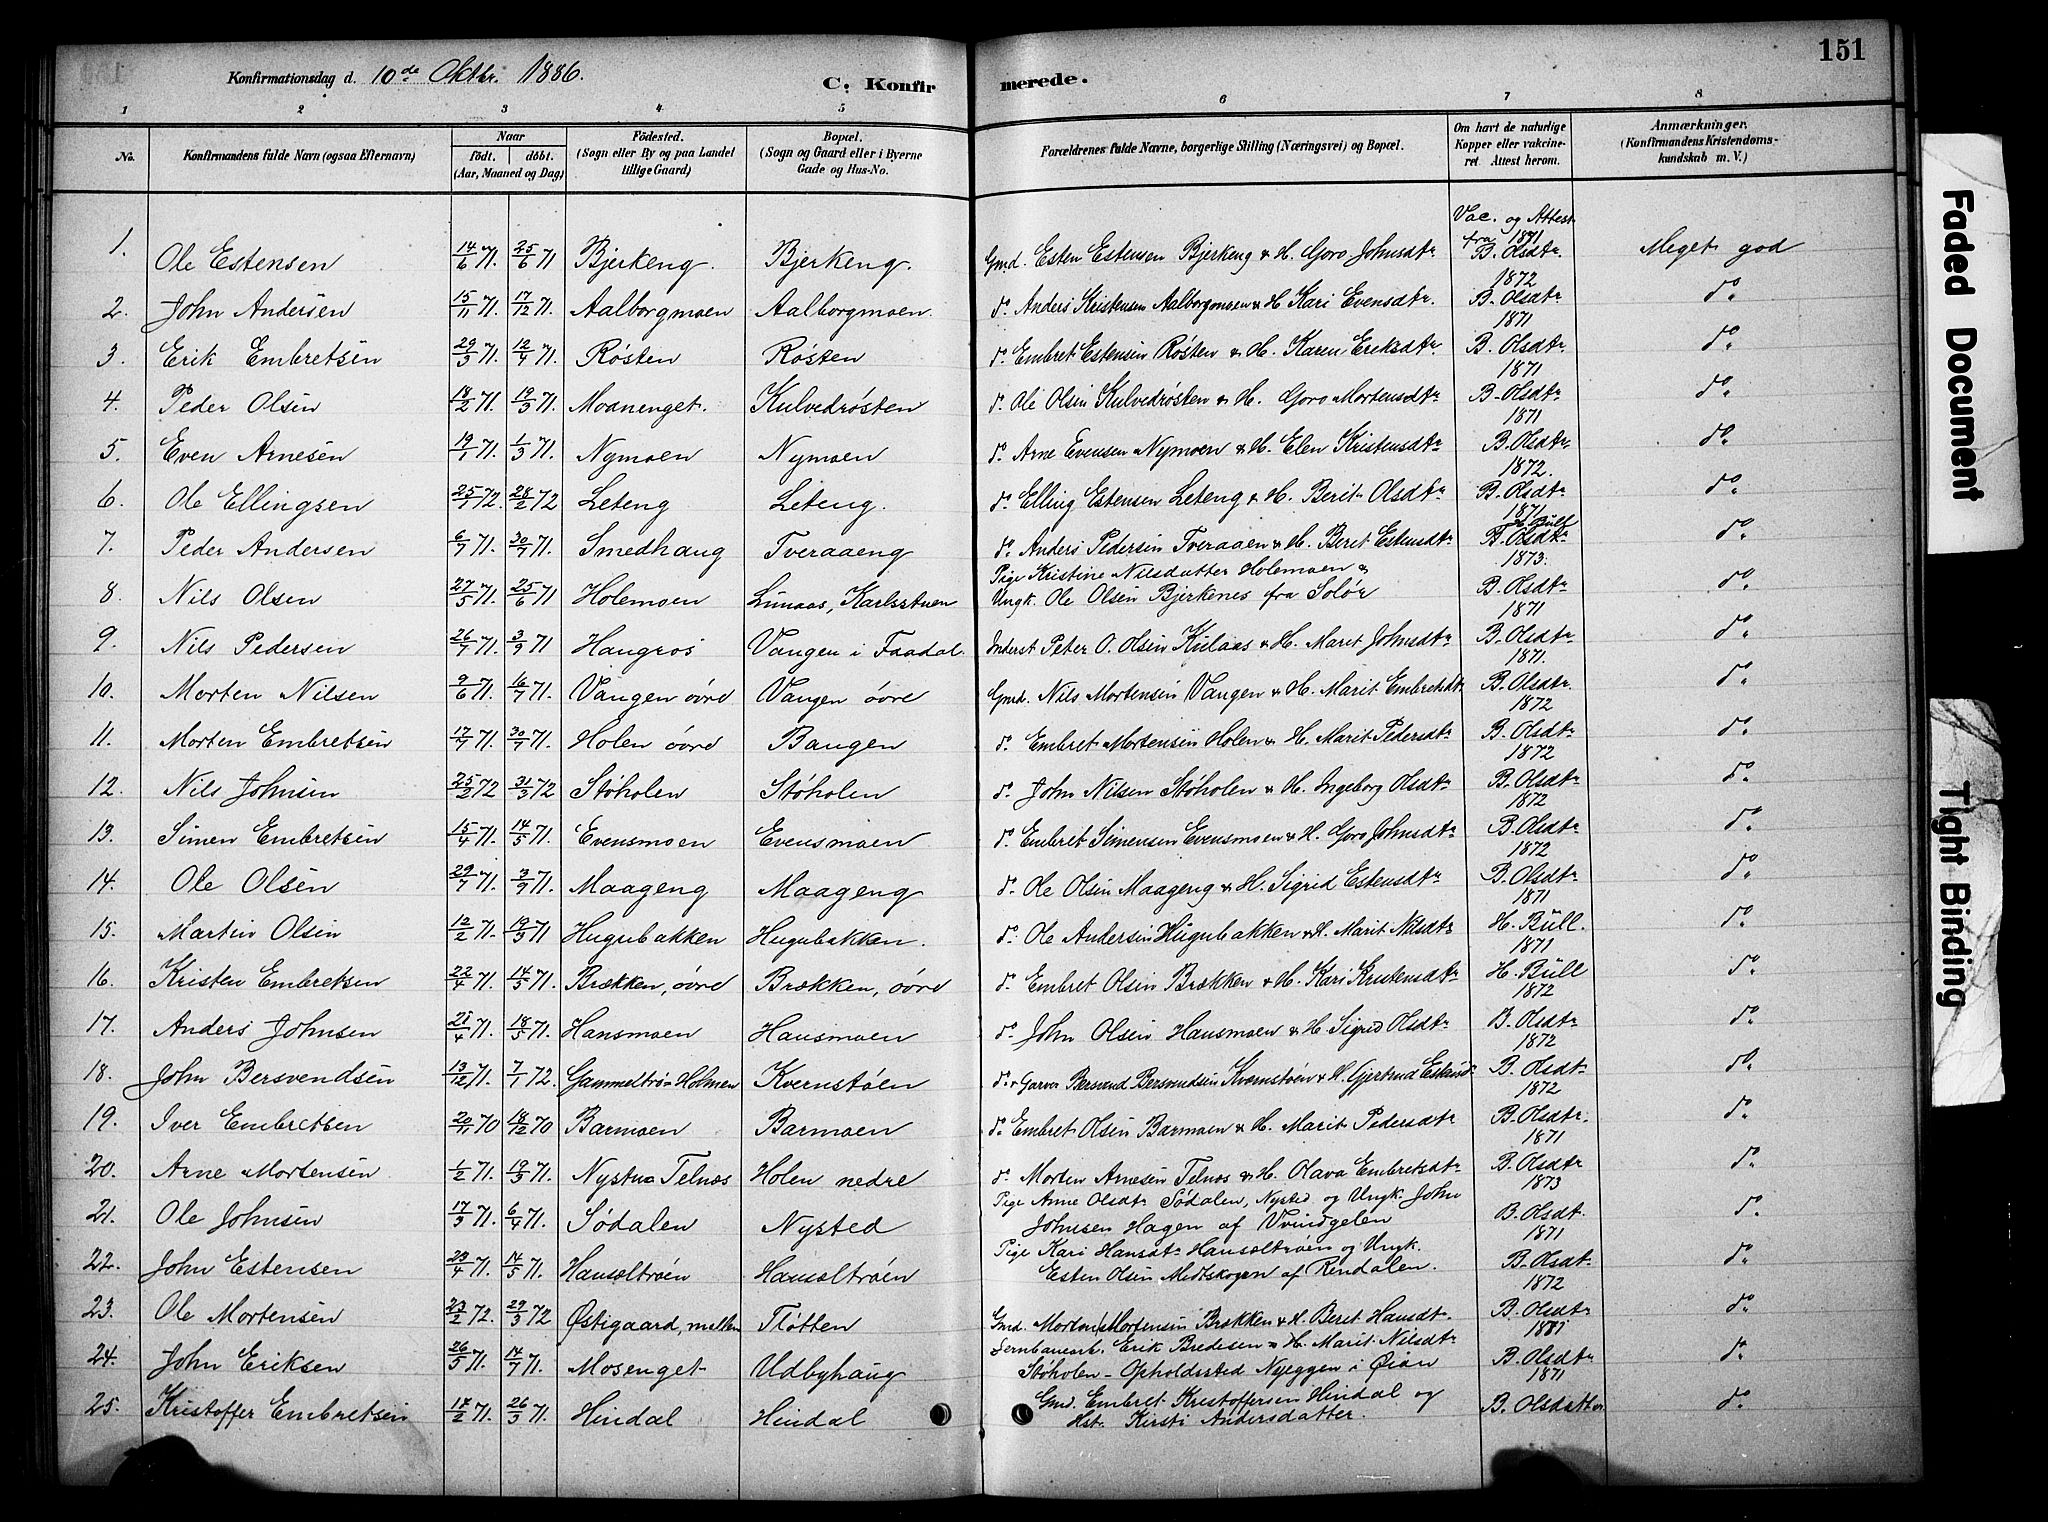 151
Konfirmationsdag d. 10de Oktbr. 1886.
C. Konfirmerede.
1 2 3 4 5 6 7 8
No. Konfirmandens fulde Navn (ogsaa Efternavn) Naar födt. döbt. (Aar, Maaned og Dag) Födested. (Sogn eller By og paa Landet tillige Gaard) Bopæl. (Sogn og Gaard eller i Byerne Gade og Hus-No. Forældrenes fulde Navne, borgerlige Stilling (Næringsvei) og Bopæl. Om havt de naturlige Kopper eller vakcineret. Attest herom. Anmærkninger. (Konfirmandens Kristendomskundskab m. V.)
1. Ole Estensen 14/6 71. 25/6 71 Bjerkeng. Bjerkeng. Gmd. Esten Estensen Bjerkeng & H. Goro Johnsdtr Vac. og Attest fra 1871 B. Olsdtr. Meget god
2. John Andersen 15/11 71. 17/12 71. Aalborgmoen Aalborgmoen. do Anders Kristensen Aalborgmoen & H. Kari Evensdtr. 1872 B. Olsdtr do
3. Erik Embretsen 29/3 71. 12/4 71. Røsten Røsten do Embret Estensen Røsten & H. Karen Eriksdtr. 1871 B. Olsdtr. do
4. Peder Olsen 18/2 71. 19/3 71. Moanenget. Kulvedrøsten do Ole Olsen Kulvedrøsten & H. Goro Mortensdtr 1871 B. Olsdtr do
5. Even Arnesen 19/1 71. 1/3 71. Nymoen Nymoen do Arne Evensen Nymoen & H. Elen Kristensdtr 1871 B. Olsdtr. do
6. Ole Ellingsen 25/1 72. 28/2 72 Leteng Leteng. do Elling Estensen Leteng & H. Berit Olsdtr 1872. B. Olsdtr do
7. Peder Andersen 6/7 71. 30/7 71. Smedhaug Tveraaeng do Anders Pedersen Tveraaen & H. Beret Estensdtr 1871 H. Büll B. Olsdtr do
8. Nils Olsen 27/5 71. 25/6 71 Holemoen Linaas, Karlsstuen Pige Kristine Nilsdatter Holemoen & Ungk. Ole Olsen Bjerkenes fra Solør 1873. B. Olsdtr do
9. Nils Pedersen 26/7 71. 3/9 71. Haugros Vangen i Faadal. Inderst Peter O. Olsen Kulaas & H. Marit Johnsdtr 1871 B. Olsdtr do
10. Morten Nilsen 9/6 71. 16/7 71. Vangen övre Vangen övre Gmd. Nils Mortensen Vangen & H. Marit Embretsdtr 1871. B. Olsdtr. do
11. Morten Embretsen 17/7 71. 30/7 71. Holen övre Bangen do Embret Mortensen Holen & H. Marit Pedersdtr 1872 B. Olsdtr do
12. Nils Johnsen 25/2 72 31/3 72 Støholen Støholen do John Nilsen Støholen & H. Ingeborg Olsdtr 1872 B. Olsdtr do
13. Simen Embretsen 15/4 71. 14/5 71. Evensmoen Evensmoen do Embret Simensen Evensmoen & H. Goro Johnsdtr 1872 B. Olsdtr do
14. Ole Olsen 29/7 71. 3/9 71. Maageng Maageng do Ole Olsen Maageng & H. Sigrid Estensdtr 1872 B. Olsdtr do
15. Martin Olsen 12/2 71. 19/3 71 Hugubakken Hugubakken. do Ole Andersen Hugubakken & H. Marit Nilsdtr 1871 H. Büll. do
16. Kristen Embretsen 22/4 71. 14/5 71. Brækken, övre Brækken, övre do Embret Olsen Brækken & H. Kari Kristensdtr 1871 H. Büll do
17. Anders Johnsen 21/4 71. 18/5 71. Hansmoen Hansmoen do John Olsen Hansmoen & H. Sigrid Olsdtr 1872 B. Olsdtr do
18. John Bersvendsen 13/12 71. 7/1 72. Gammeltrø Holmen Kvernstøen do & Garver Bersvend Bersvendsen Kvernstøen & H. Gjertrud 1872 B. Olsdtr do
19. Iver Embretsen 20/11 70 18/12 70 Barmoen Barmoen do Embret Olsen Barmoen & H. Marit Pedersdtr 1872 B. Olsdtr. do
20. Arne Mortensen 1/2 71. 19/3 71. Nystua Telnes Holen nedre do Morten Arnesen Telnes & H. Olava Embretsdtr 1871 B. Olsdtr do
21. Ole Johnsen 17/3 71. 6/4 71. Södalen Nysted Pige Anne Olsdtr Södalen, Nysted og Ungk. John Johnsen Hagen af Vvindgelen 1873 B. Olsdt. do
22. John Estensen 23/4 71. 14/5 71. Hansoltrøen Hansoltrøen Pige Kari Hansdtr Hansoltrøen og Ungk. Esten Olsen Midtskogen af Rendalen. 1871 B. Olsdt. do
23. Ole Mortensen 23/2 72. 29/3 72 Østigaard, mellem Fløtten Gmd. Morten Mortensen Brækken & H. Beret Hansdtr. 1872 B. Olsdtr do
24. John Eriksen 26/5 71. 14/7 71. Mosenget Udbyhaug Jernbanearb. Erik Bredesen & H. Marit Nilsdtr Støholen - Opholdssted Nyeggen i Øian 1871 B. Olsdtr do
25. Kristoffer Embretsen 17/2 71. 26/3 71. Hindal Hindal Gmd. Embret Kristoffersen Hindal og Hst. Kirsti Andersdatter. 1871 B. Olsdatter do
Faded Document
Tight Binding